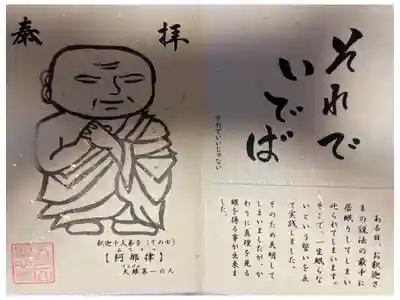 それで
いでば
それでいいじゃない
ある日、お釈迦さ
まの説法の最中に
居眠りしてしまい
叱られてしまいます。
そこで、一生眠らな
いという誓いを立
て実践しました。
そのため失明して
しまいましたが、か
わりに真理を見る
眼を得る事が出来ま
した。
奉拝
釈迦十大弟子（その七）
【阿那律】
天眼第一の人